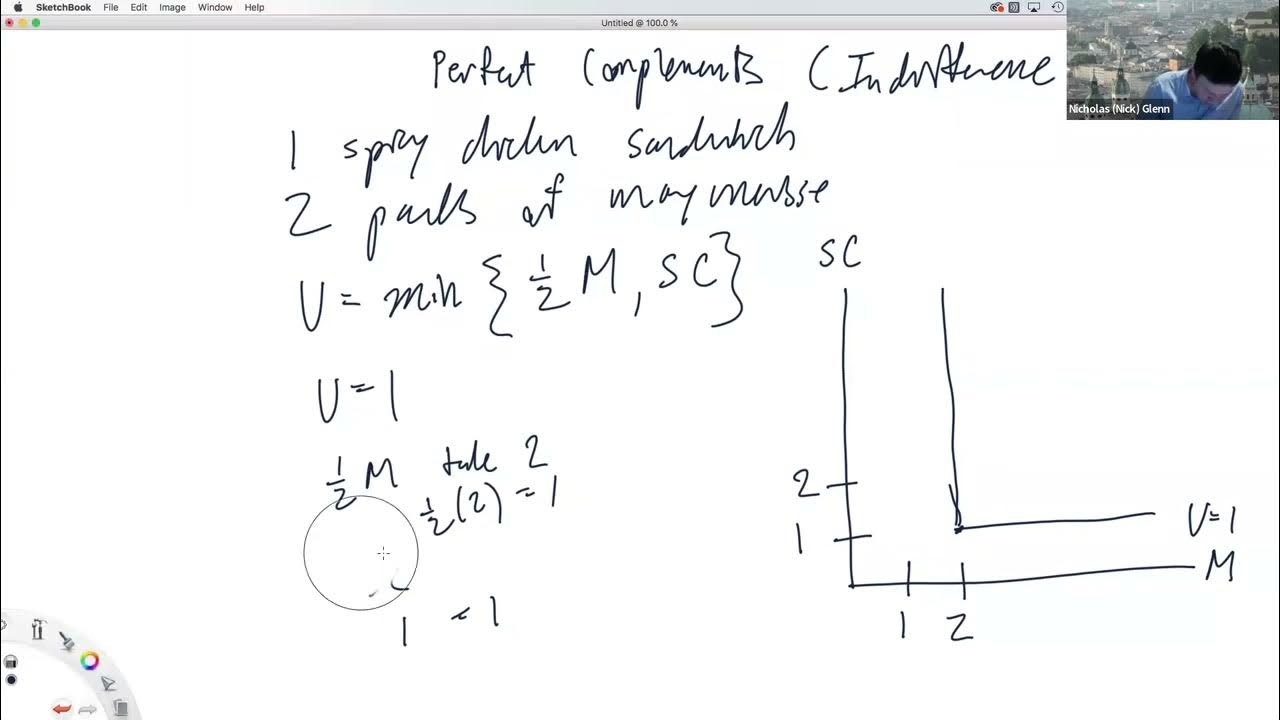 SketchBook File Edit Image Window Help
Untitled @ 100.0 %
Nicholas (Nick) Glenn
Perfect Complements (Indifference
1 spicy chicken sandwich
2 packs of mayonnaise
U = min { 1/2 M, SC }
U = 1
1/2 M take 2
1/2 (2) = 1
1 = 1
SC
2
1
U=1
M
1 2